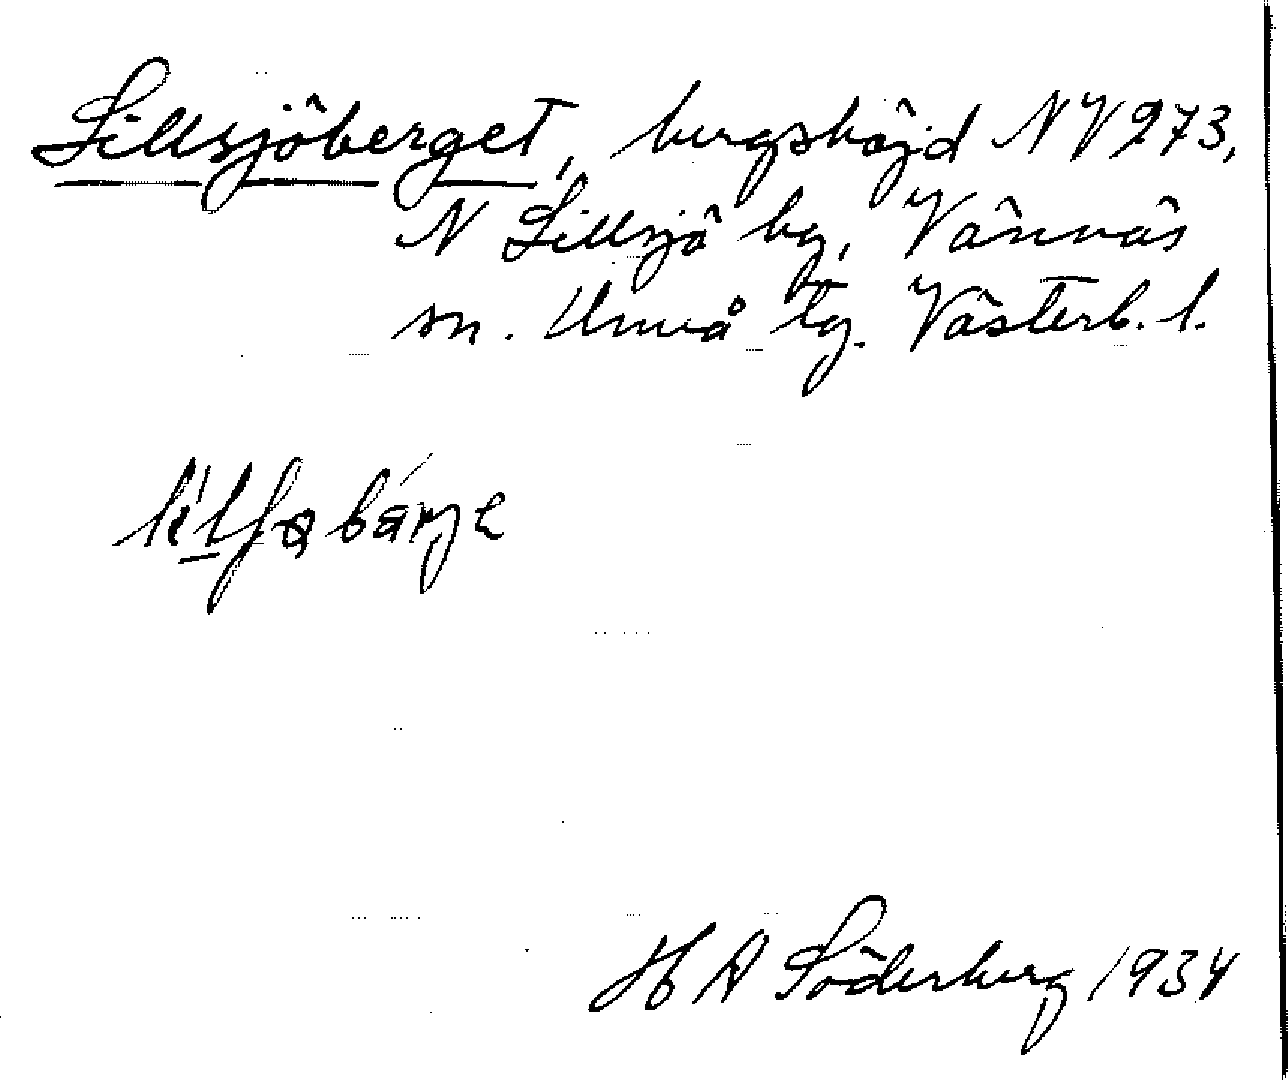 Lillsjöberget, bergshöjd NV 273,
N Lillsjö by, Vännäs
sn. Umeå tg. Västerb. l.
H A Söderberg 1934